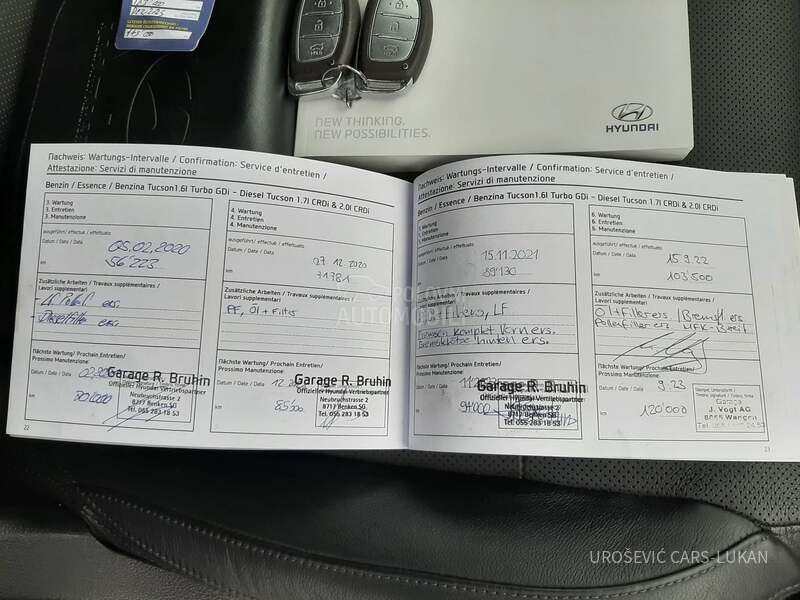 NEW THINKING.
NEW POSSIBILITIES.
HYUNDAI
Nachweis: Wartungs-Intervalle / Confirmation: Service d'entretien /
Attestazione: Servizi di manutenzione
Benzin / Essence / Benzina Tucson1.6l Turbo GDi – Diesel Tucson 1.7l CRDi & 2.0l CRDi
3. Wartung
3. Entretien
3. Manutenzione
ausgeführt / effectué / effettuato
Datum / Date / Data
05.02.2020
km
56'223
Zusätzliche Arbeiten / Travaux supplémentaires /
Lavori supplementari
ers.
Dieselfilter ers.
Nächste Wartung/ Prochain Entretien/
Prossimo Manutenzione:
Datum / Date / Data
km
Garage R. Bruhin
Offizieller Hyundai-Vertriebspartner
Neubruchstrasse 2
8717 Benken SG
Tel. 055 283 18 53
22
4. Wartung
4. Entretien
4. Manutenzione
ausgeführt / effectué / effettuato
Datum / Date / Data
07.12.2020
km
71'781
Zusätzliche Arbeiten / Travaux supplémentaires /
Lavori supplementari
PF, Öl + Filter
Nächste Wartung/ Prochain Entretien/
Prossimo Manutenzione:
Datum / Date / Data
12.20
km
85'000
Garage R. Bruhin
Offizieller Hyundai-Vertriebspartner
Neubruchstrasse 2
8717 Benken SG
Tel. 055 283 18 53
Nachweis: Wartungs-Intervalle / Confirmation: Service d'entretien /
Attestazione: Servizi di manutenzione
Benzin / Essence / Benzina Tucson1.6l Turbo GDi – Diesel Tucson 1.7l CRDi & 2.0l CRDi
5. Wartung
5. Entretien
5. Manutenzione
ausgeführt / effectué / effettuato
Datum / Date / Data
15.11.2021
km
89'130
Zusätzliche Arbeiten / Travaux supplémentaires /
Lavori supplementari
LF
komplet Vorn ers.
hinten ers.
Nächste Wartung/ Prochain Entretien/
Prossimo Manutenzione:
Datum / Date / Data
km
Garage R. Bruhin
Offizieller Hyundai Vertriebspartner
Neubruchstrasse 2
8717 Benken SG
Tel. 055 283 18 53
6. Wartung
6. Entretien
6. Manutenzione
ausgeführt / effectué / effettuato
Datum / Date / Data
15.9.22
km
103'500
Zusätzliche Arbeiten / Travaux supplémentaires /
Lavori supplementari
Öl + Filter ers.
Pollenfilter ers. MFK-Bereit
Nächste Wartung/ Prochain Entretien/
Prossimo Manutenzione:
Datum / Date / Data
9.23
km
120'000
Garage
J. Vogt AG
8855 Wangen
23
POLOVNI
AUTOMOBILI
UROŠEVIĆ CARS-LUKAN